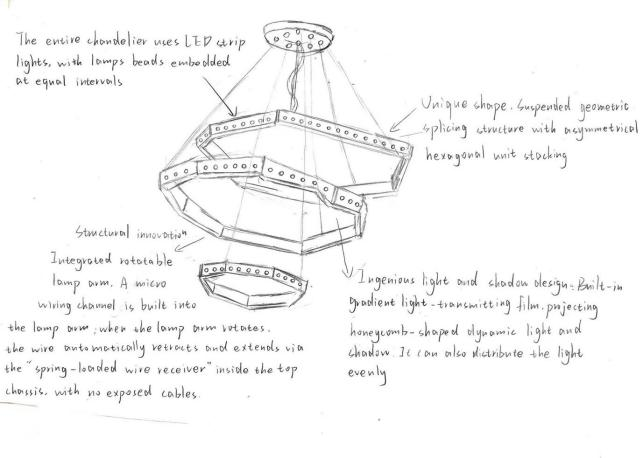 The entire chandelier uses LED strip
lights, with lamps beads embedded
at equal intervals
Unique shape. Suspended geometric
splicing structure with asymmetrical
hexagonal unit stacking
Structural innovation
Integrated rotatable
lamp arm. A micro
wiring channel is built into
the lamp arm; when the lamp arm rotates,
the wire automatically retracts and extends via
the "spring-loaded wire receiver" inside the top
chassis, with no exposed cables.
Ingenious light and shadow design: Built-in
gradient light-transmitting film, projecting
honeycomb-shaped dynamic light and
shadow. It can also distribute the light
evenly